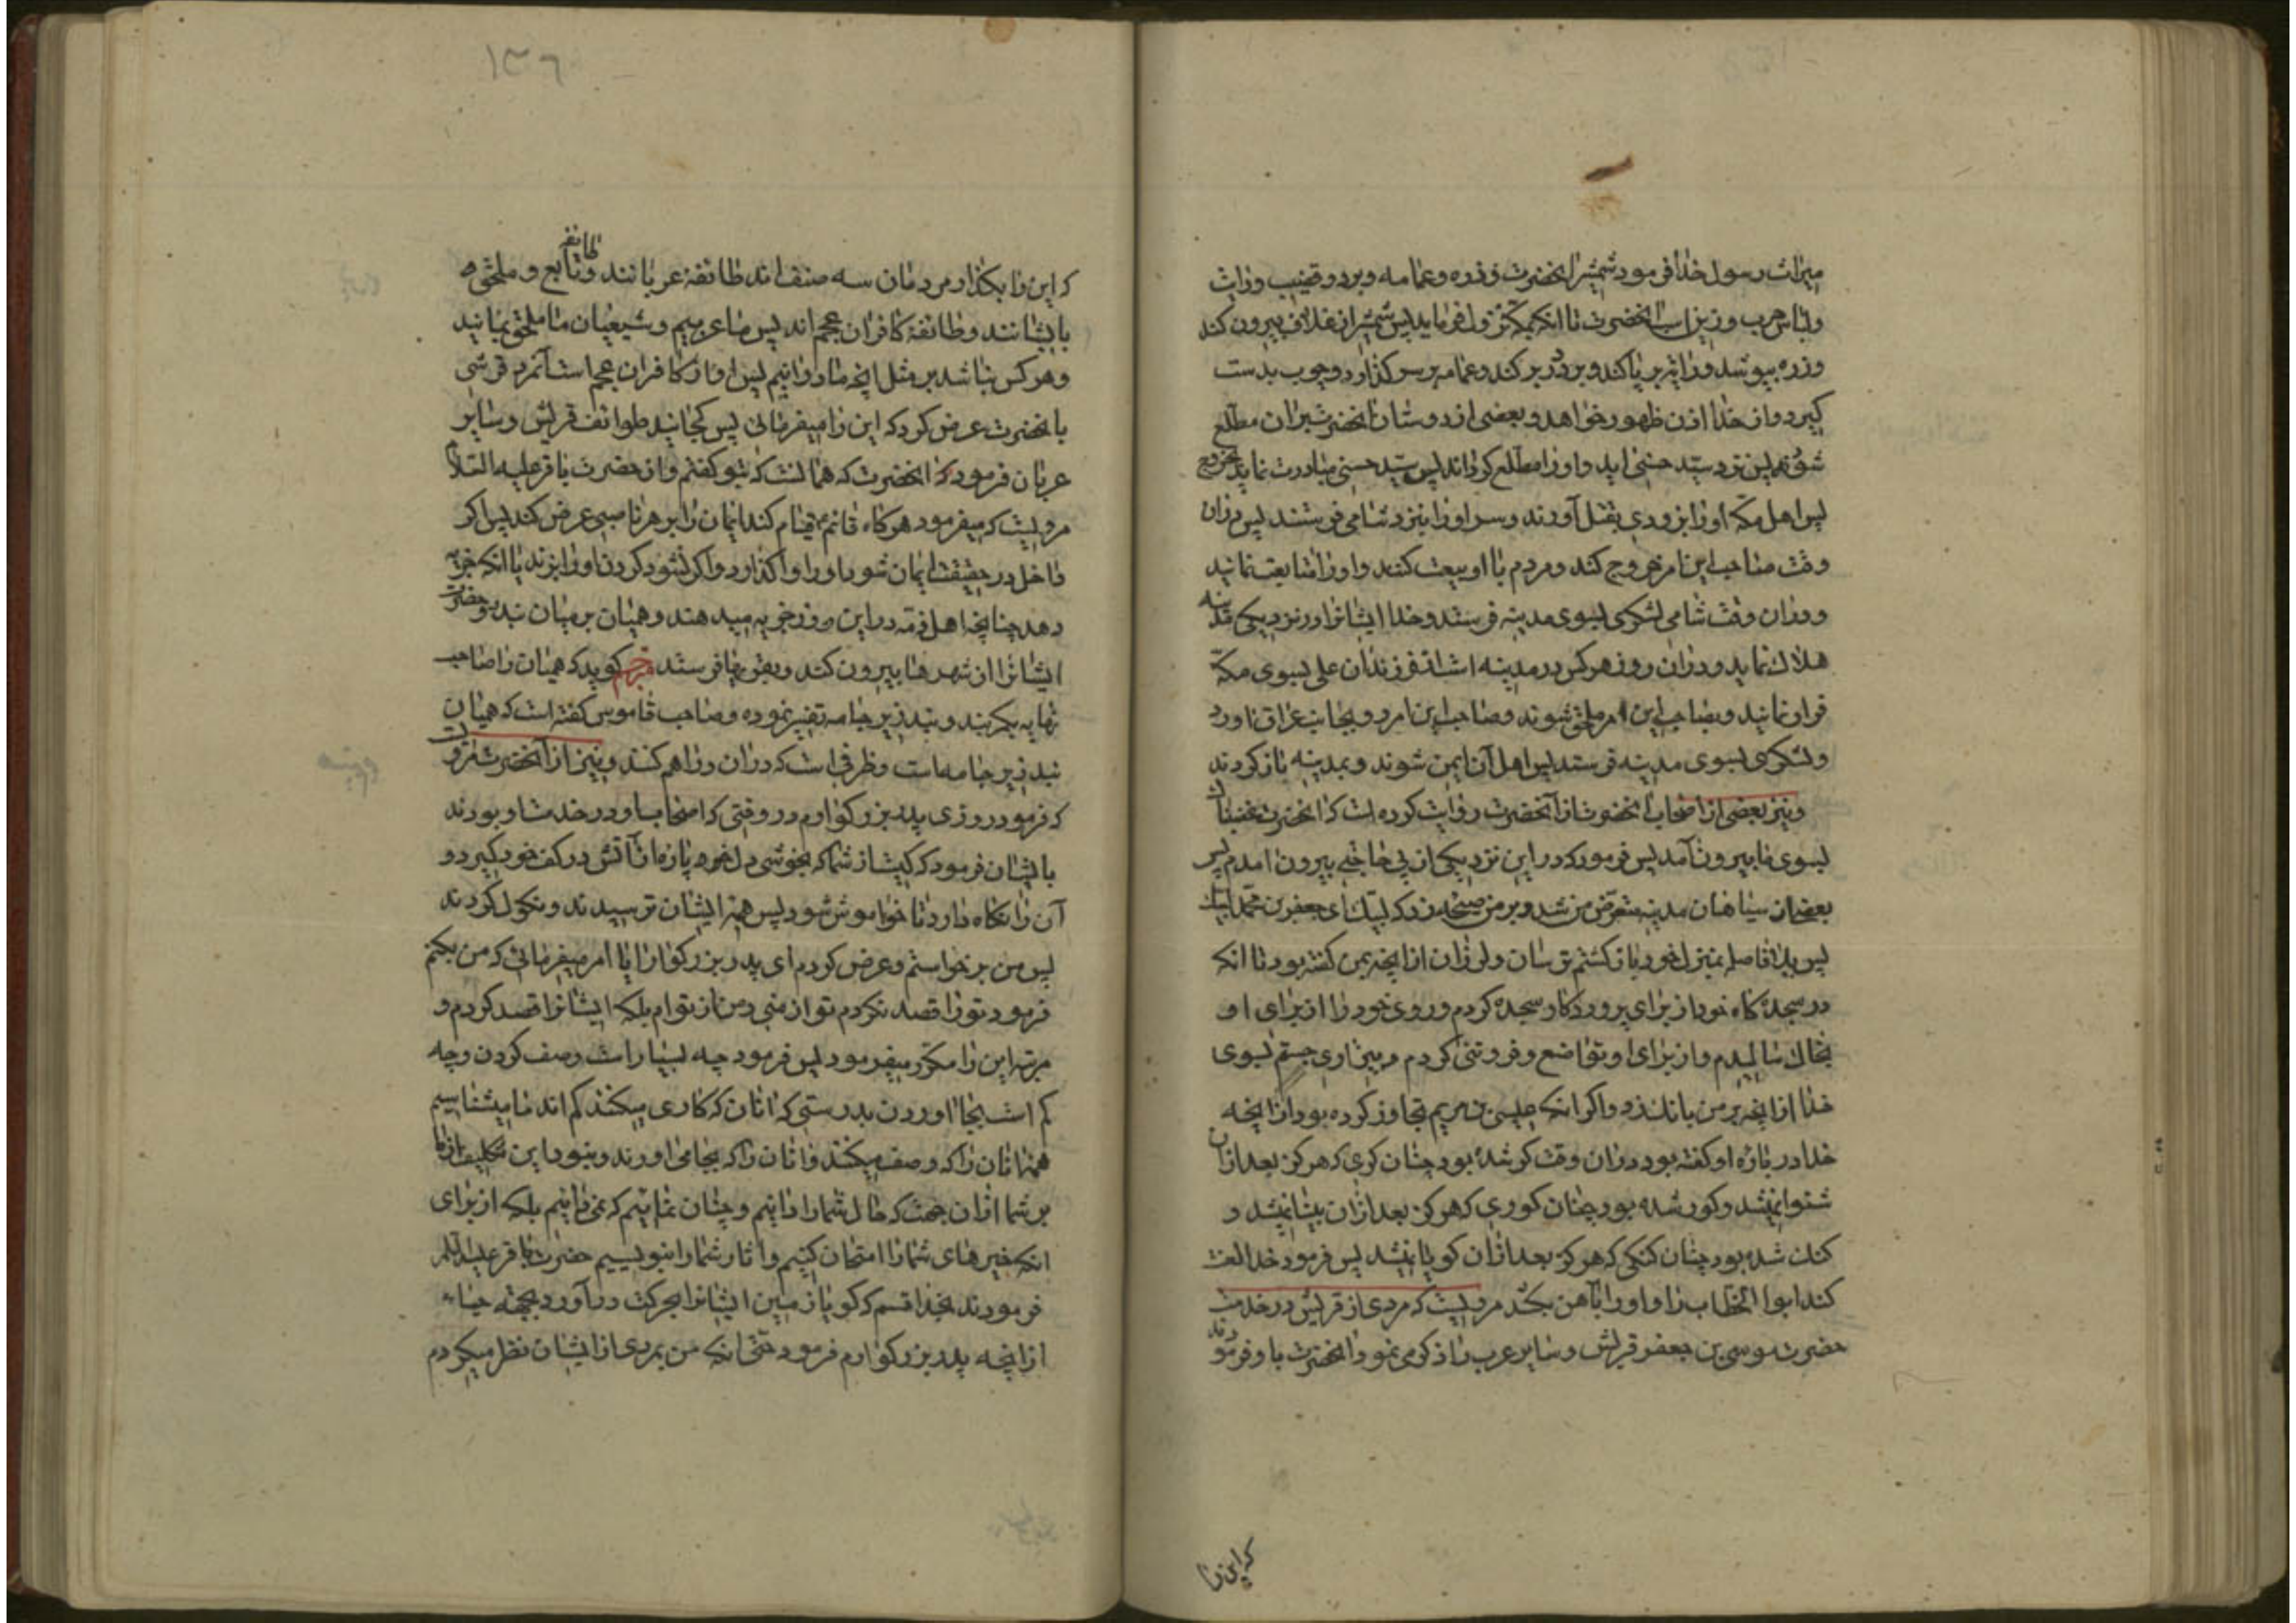 میراث رسول خدا فرمود شمشیر انحضرت و زره و عمامه و برد و قضیب و رایت
و لباس حرب و زین اسب انحضرت تا انکه بمکه نزول فرماید پس شمشیر از غلاف بیرون کند
و زره بپوشد و رایت بر پا کند و برد در بر کند و عمامه بر سر کذارد و چوب بدست
کیرد و از خدا اذن ظهور خواهد و بعضی از دوستان انحضرت بران مطلع
شوند پس نزد سید حسنی اید و او را مطلع کرداند پس سید حسنی مبادرت نماید بخروج
پس اهل مکه او را بزودی بقتل آورند و سر او را بنزد شامی فرستند پس دران
وقت صاحب این امر خروج کند و مردم با او بیعت کنند و او را متابعت نمایند
و دران وقت شامی لشکری بسوی مدینه فرستد و خدا ایشانرا در نزدیکی مدینه
هلاك نماید و دران روز هرکس در مدینه است از فرزندان علی بسوی مکه
فرار نمایند و بصاحب این امر ملحق شوند و صاحب این امر رو بجانب عراق اورد
و لشکری بسوی مدینه فرستد پس اهل آن ایمن شوند و بمدینه باز کردند
و نیز بعضی از اصحاب انحضرت از آنحضرت روایت کرده است که انحضرت غضبناك
بسوی ما بیرون آمد پس فرمود که در این نزدیکی از پی حاجتی بیرون امدم پس
بعضی از سیاهان مدینه متعرض من شد و بر من صیحه زد که لبیك ای جعفر بن محمد لبیك
پس بلا فاصله بمنزل خود باز کشتم ترسان و لرزان از انچه بمن کفته بود تا انکه
در سجده کاه خود از برای پروردکار سجده کردم و روی خود را از برای او
بخاك مالیدم و از برای او تواضع و فروتنی کردم و بیزاری جستم بسوی
خدا از انچه بر من بانك زد و اکر انکه عیسی بن مریم تجاوز کرده بود از انچه
خدا در باره او کفته بود دران وقت کر شده بود چنان کری که هرکز بعد ازان
شنوا نمیشد و کور شده بود چنان کوری که هرکز بعد ازان بینا نمیشد و
کنك شده بود چنان کنکی که هرکز بعد ازان کویا نمیشد پس فرمود خدا لعنت
کند ابوا الخطاب را و او را بآهن بکشد مرویست که مردی از قریش در خدمت
حضرت موسی بن جعفر قریش و سایر عرب را ذکر می نمود انحضرت باو فرمودند
که این را
۱۳٦
که این را بکذار مردمان سه صنف اند طائفۀ عربانند و طایفه تابع و ملحق
بایشانند و طائفۀ کافران عجم اند پس ما عربیم و شیعیان ما ملحق بمایند
و هرکس نباشد بر مثل انچه ما برانیم پس او از کافران عجم است آنمرد قرشی
بانحضرت عرض کرد که این را میفرمائی پس کجایند طوائف قریش و سایر
عربان فرمود انحضرت که همانست که بتو کفتم و از حضرت باقر علیه السلام
مرویست که میفرمود هرکاه قائم قیام کند ایمان را بر هر ناصبی عرض کند پس اکر
داخل در حقیقت ایمان شود او را واکذارد و اکر نشود کردن او را بزند یا انکه جزیه
دهد چنانچه اهل ذمه در این روز جزیه میدهند و همیان بر میان بندد و حضرت
ایشانرا از شهرها بیرون کند و بقریها فرستد مترجم کوید که همیان را صاحب
نهایه بکمربند و بند زیر جامه تفسیر نموده و صاحب قاموس کفته است که همیان
بند زیر جامه است و ظرفی است که دران دراهم کنند و نیز از آنحضرت مرویست
که فرمود روزی پدر بزرکوارم در وقتی که اصحاب او در خدمت او بودند
بایشان فرمود که کیست از شما که بخوشی دل خود پاره از آتش در کف خود کیرد و
آن را نکاه دارد تا خواموش شود پس همه ایشان ترسیدند و نکول کردند
پس من برخواستم و عرض کردم ای پدر بزرکوار ایا امر میفرمائی که من بکنم
فرمود تو را قصد نکردم تو از منی و من از توام بلکه ایشانرا قصد کردم و
مرتبه این را مکرر میفرمود پس فرمود چه بسیار است وصف کردن و چه
کم است بجا اوردن بدرستی که انان که کاری میکنند کم اند ما میشناسیم
هم انان را که وصف میکنند و انان را که بجا می اورند و نبود این تکلیف از ما
بر شما ازان جهت که حال شما را دانیم و چنان نمائیم که نمی دانیم بلکه از برای
انکه خبرهای شما را امتحان کنیم و اثار شما را بنویسیم حضرت باقر علیه السلام
فرمودند بخدا قسم که کویا زمین ایشانرا بحرکت در آورد بجهته حیاء
از انچه پدر بزرکوارم فرمود حتی انکه من بمردی از ایشان نظر میکردم